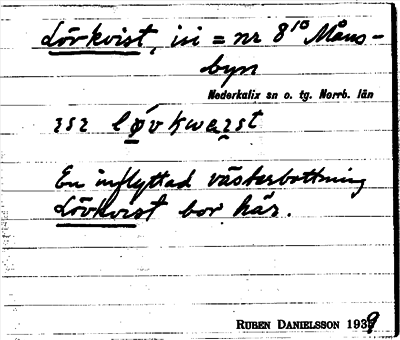 Lövkvist, isi = nr 8¹⁰ Måns-
byn
Nederkalix sn o. tg. Norrb. län
En inflyttad västerbottning
Lövkvist bor här.
RUBEN DANIELSSON 1939